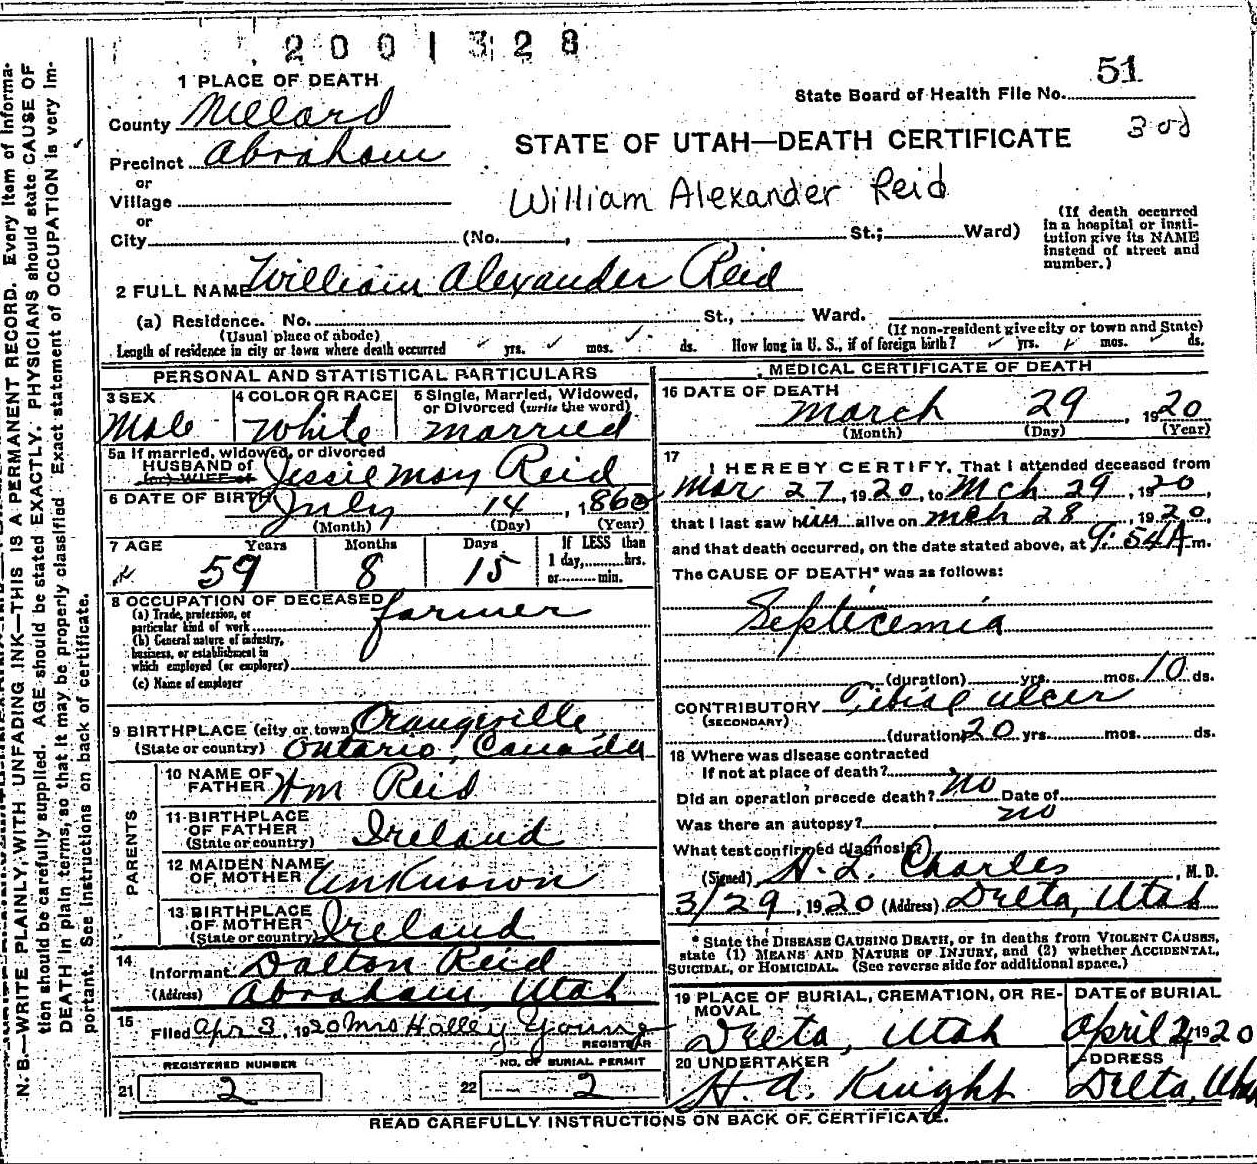 2001328
1 PLACE OF DEATH
State Board of Health File No. 51
County Millard
STATE OF UTAH—DEATH CERTIFICATE
Precinct Abraham
or
Village
William Alexander Reid
or
City (No. , St.; Ward)
(If death occurred
in a hospital or insti-
tution give its NAME
instead of street and
number.)
2 FULL NAME William Alexander Reid
(a) Residence. No. St., Ward.
(Usual place of abode)
(If non-resident give city or town and State)
Length of residence in city or town where death occurred yrs. mos. ds. How long in U. S., if of foreign birth? yrs. mos. ds.
PERSONAL AND STATISTICAL PARTICULARS
3 SEX
Male
4 COLOR OR RACE
White
5 Single, Married, Widowed,
or Divorced (write the word)
Married
5a If married, widowed, or divorced
HUSBAND of
(or) WIFE of
Jessie May Reid
6 DATE OF BIRTH July 14, 1860
(Month) (Day) (Year)
7 AGE Years Months Days If LESS than
1 day, hrs.
or min.
59 8 15
8 OCCUPATION OF DECEASED
(a) Trade, profession, or
particular kind of work farmer
(b) General nature of industry,
business, or establishment in
which employed (or employer)
(c) Name of employer
9 BIRTHPLACE (city or town) Orangeville
(State or country) Ontario, Canada
PARENTS
10 NAME OF
FATHER Wm Reid
11 BIRTHPLACE
OF FATHER
(State or country) Ireland
12 MAIDEN NAME
OF MOTHER Unknown
13 BIRTHPLACE
OF MOTHER
(State or country) Ireland
14
Informant Dalton Reid
(Address) Abraham, Utah
15
Filed Apr 3, 1920 Mrs Halley Young
REGISTRAR
REGISTERED NUMBER
21 2
NO. OF BURIAL PERMIT
22 2
MEDICAL CERTIFICATE OF DEATH
16 DATE OF DEATH
March 29, 1920
(Month) (Day) (Year)
17
I HEREBY CERTIFY, That I attended deceased from
Mar 27, 1920, to Mch 29, 1920,
that I last saw him alive on Mch 28, 1920,
and that death occurred, on the date stated above, at 9:54 A m.
The CAUSE OF DEATH* was as follows:
Septicemia
(duration) yrs. mos. 10 ds.
CONTRIBUTORY Tibial ulcer
(SECONDARY)
(duration) 20 yrs. mos. ds.
18 Where was disease contracted
If not at place of death?
Did an operation precede death? no Date of
Was there an autopsy? no
What test confirmed diagnosis?
(Signed) H. L. Charles, M. D.
3/29, 1920 (Address) Delta, Utah
* State the DISEASE CAUSING DEATH, or in deaths from VIOLENT CAUSES,
state (1) MEANS AND NATURE OF INJURY, and (2) whether ACCIDENTAL,
SUICIDAL, or HOMICIDAL. (See reverse side for additional space.)
19 PLACE OF BURIAL, CREMATION, OR RE-
MOVAL
Delta, Utah
DATE of BURIAL
April 2, 1920
20 UNDERTAKER
H. A. Knight
ADDRESS
Delta, Utah
READ CAREFULLY INSTRUCTIONS ON BACK OF CERTIFICATE.
N. B.—WRITE PLAINLY, WITH UNFADING INK—THIS IS A PERMANENT RECORD. Every item of informa-
tion should be carefully supplied. AGE should be stated EXACTLY. PHYSICIANS should state CAUSE OF
DEATH in plain terms, so that it may be properly classified. Exact statement of OCCUPATION is very im-
portant. See instructions on back of certificate.